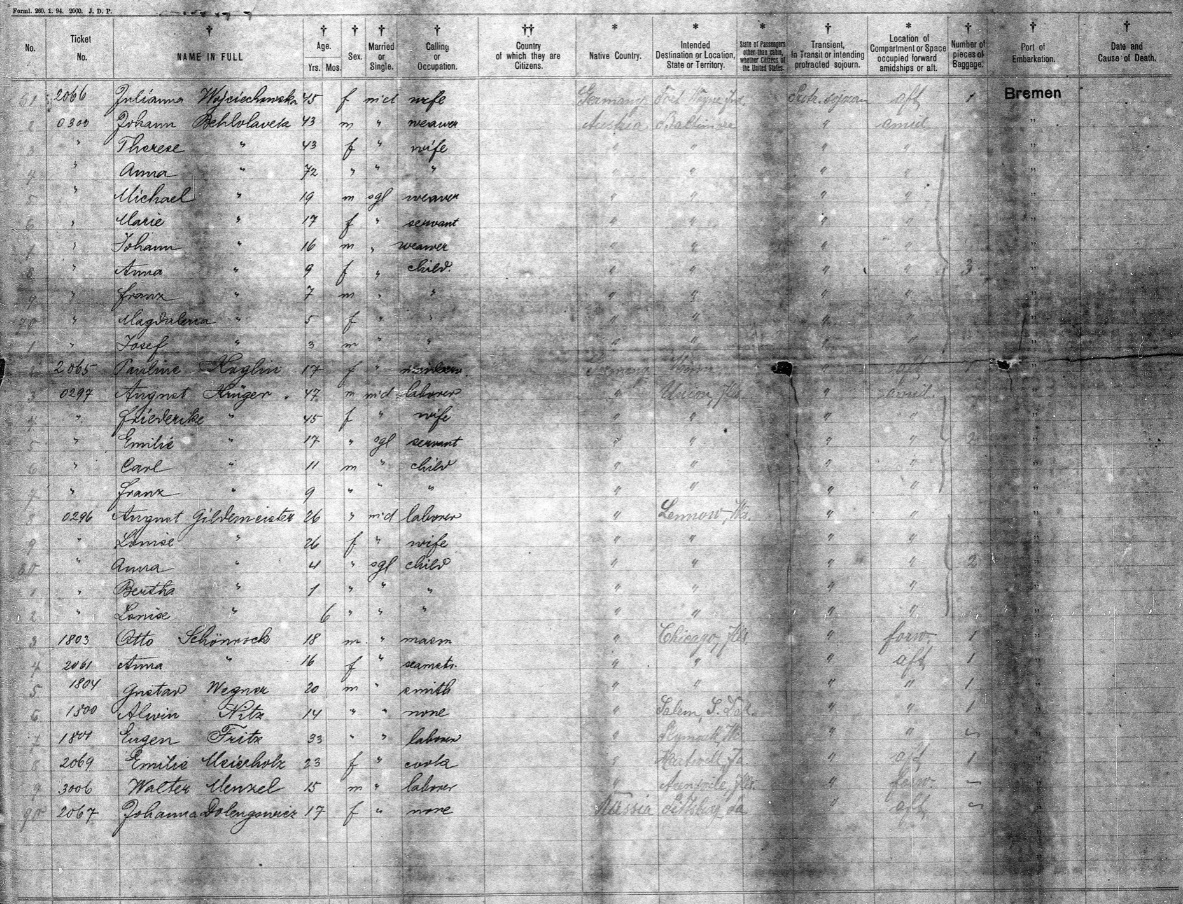 Forml. 260. 1. 94. 2000. J. D. P.
No. Ticket No. † NAME IN FULL † Age. Yrs. Mos. † Sex. † Married or Single. † Calling or Occupation. †† Country of which they are Citizens. * Native Country. * Intended Destination or Location, State or Territory. * State of Passengers other than cabin, whether Citizens of the United States. † Transient, In Transit or intending protracted sojourn. * Location of Compartment or Space occupied forward amidships or aft. † Number of pieces of Baggage. † Port of Embarkation. † Date and Cause of Death.
61 2066 Julianna 45 f m'd wife Germany aft 1 Bremen
2 0300 Johann Behlolaveta 43 m " weaver Austria Baltimore " amid "
3 " Therese " 43 f " wife " " " " "
4 " Anna " 72 " " " " " " " "
5 " Michael " 19 m sgl weaver " " " " "
6 " Marie " 17 f " servant " " " " "
" Johann " 16 m " weawer " " " " "
8 " Anna " 9 f " child. " " " " 3 "
9 " Franz " 7 m " " " " " " "
" Magdalena " 5 f " " " " " "
1 " Josef " 3 m " " " " " "
2065 Pauline 17 f " aft 1
3 0297 August Krüger 47 m m'd laborer " " amid "
4 " Friederike " 45 f " wife " " " " "
5 " Emilie " 17 " sgl servant " " " " 2 "
6 " Carl " 11 m " child " " " " "
7 " Franz " 9 " " " " " " " "
8 0296 August Gildemeister 26 " m'd laborer " " " "
9 " Louise " 26 f " wife " " " " "
80 " Anna " 4 " sgl child " " " " 2 "
1 " Bertha " 1 " " " " " " " "
2 " Louise " 6 " " " " " " "
3 1803 Otto 18 m " " Chicago, " forw. 1 "
4 2061 Anna " 16 f " seamstr. " " " aft 1 "
5 1804 Gustav Wegner 20 m " smith " " " " 1 "
6 1500 Alwin Nitz 14 " " none " Salem, S. Dak. " " 1 "
7 Eugen Fritz 33 " " laborer " " " – "
8 2069 Emilie Meierholz 23 f " " " aft 1 "
9 3006 Walter Menzel 15 m " laborer " " forw – "
90 2067 Johanna Dolengowicz 17 f " none Russia " aft – "